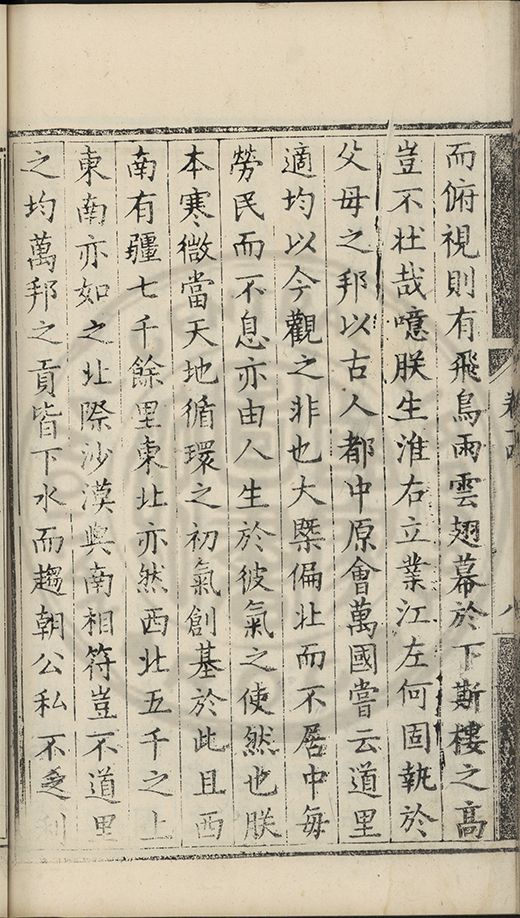 而俯視則有飛鳥雨雲翅幕於下斯樓之高
豈不壯哉噫朕生淮右立業江左何固執於
父母之邦以古人都中原會萬國嘗云道里
適均以今觀之非也大槩偏北而不居中每
勞民而不息亦由人生於彼氣之使然也朕
本寒微當天地循環之初氣創基於此且西
南有疆七千餘里東北亦然西北五千之上
東南亦如之北際沙漠與南相符豈不道里
之均萬邦之貢皆下水而趨朝公私不乏利